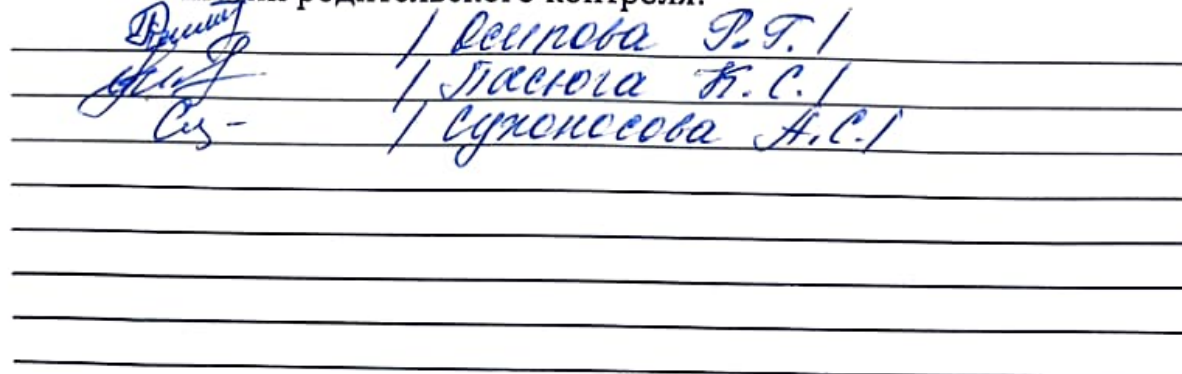 родительского контроля:
/ Осипова Р.Г. /
/ Пасюга К.С. /
/ Сухоносова А.С. /